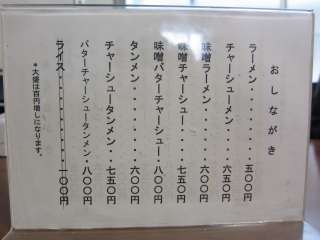 おしながき
ラーメン・・・・・・・五〇〇円
チャーシューメン・・・・六五〇円
味噌ラーメン・・・・・・六〇〇円
味噌チャーシュー・・・・七五〇円
味噌バターチャーシュー・八〇〇円
タンメン・・・・・・・・六〇〇円
チャーシュータンメン・・七五〇円
バターチャーシュータンメン・八〇〇円
ライス・・・・・・・・・一〇〇円
*大盛は百円増しになります。